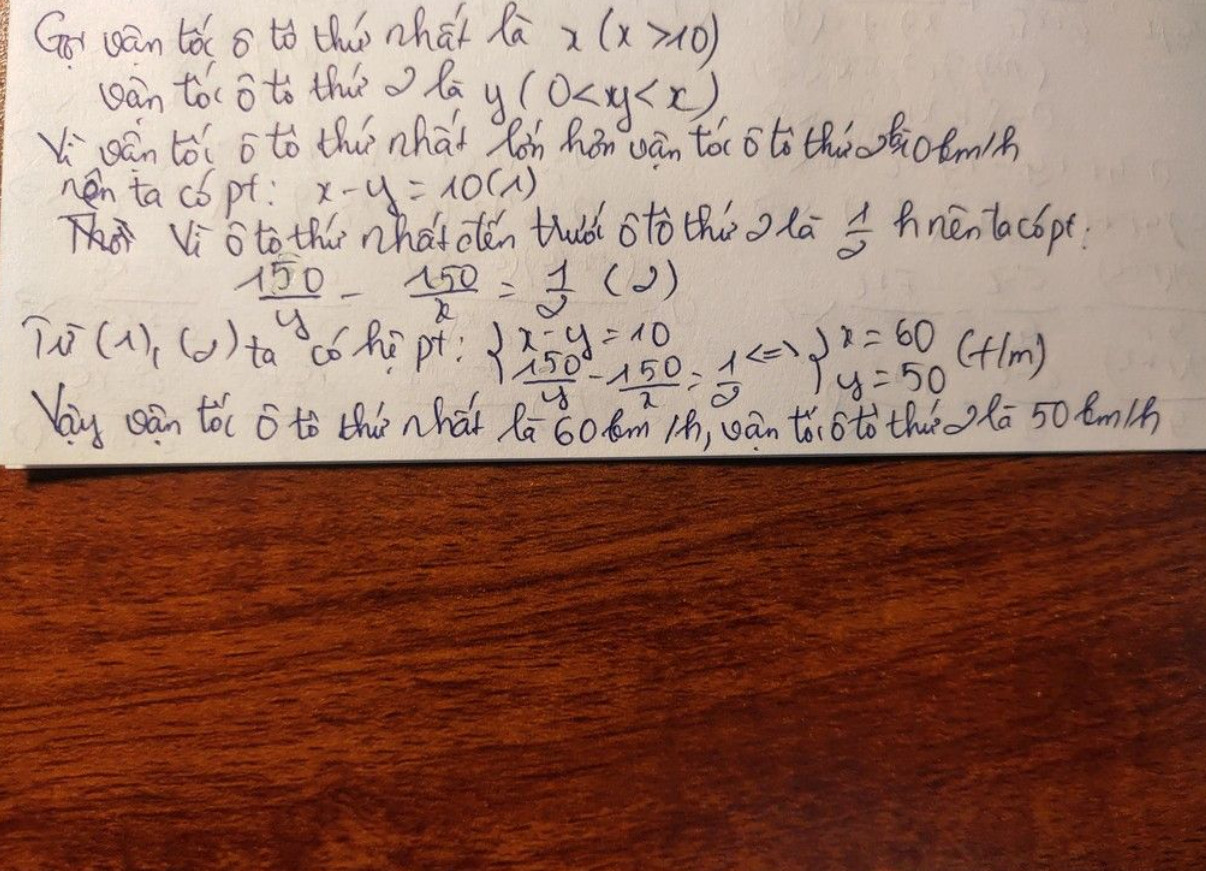 Gọi vận tốc ô tô thứ nhất là x (x >10)
vận tốc ô tô thứ 2 là y ( 0<y<x )
Vì vận tốc ô tô thứ nhất lớn hơn vận tốc ô tô thứ 2 là 10km/h
nên ta có pt: x - y = 10 (1)
Vì ô tô thứ nhất đến trước ô tô thứ 2 là 1/2 h nên ta có pt:
150/y - 150/x = 1/2 (2)
Từ (1), (2) ta có hệ pt: { x - y = 10 ; 150/y - 150/x = 1/2 <=> { x = 60 ; y = 50 (t/m)
Vậy vận tốc ô tô thứ nhất là 60 km/h, vận tốc ô tô thứ 2 là 50 km/h